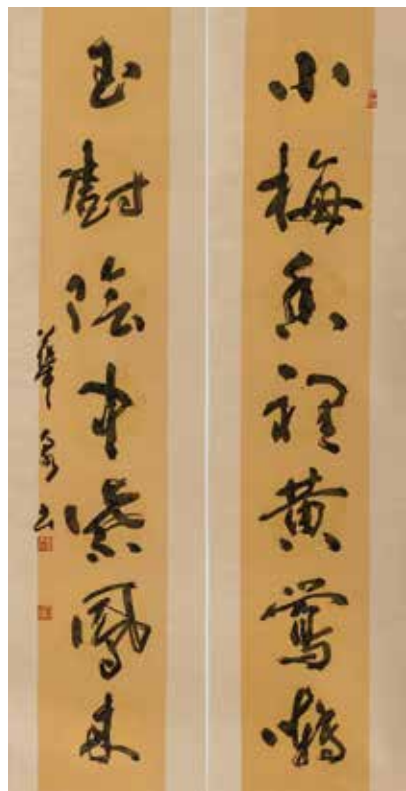 小梅香裡黃鶯囀
玉樹陰中紫鳳來